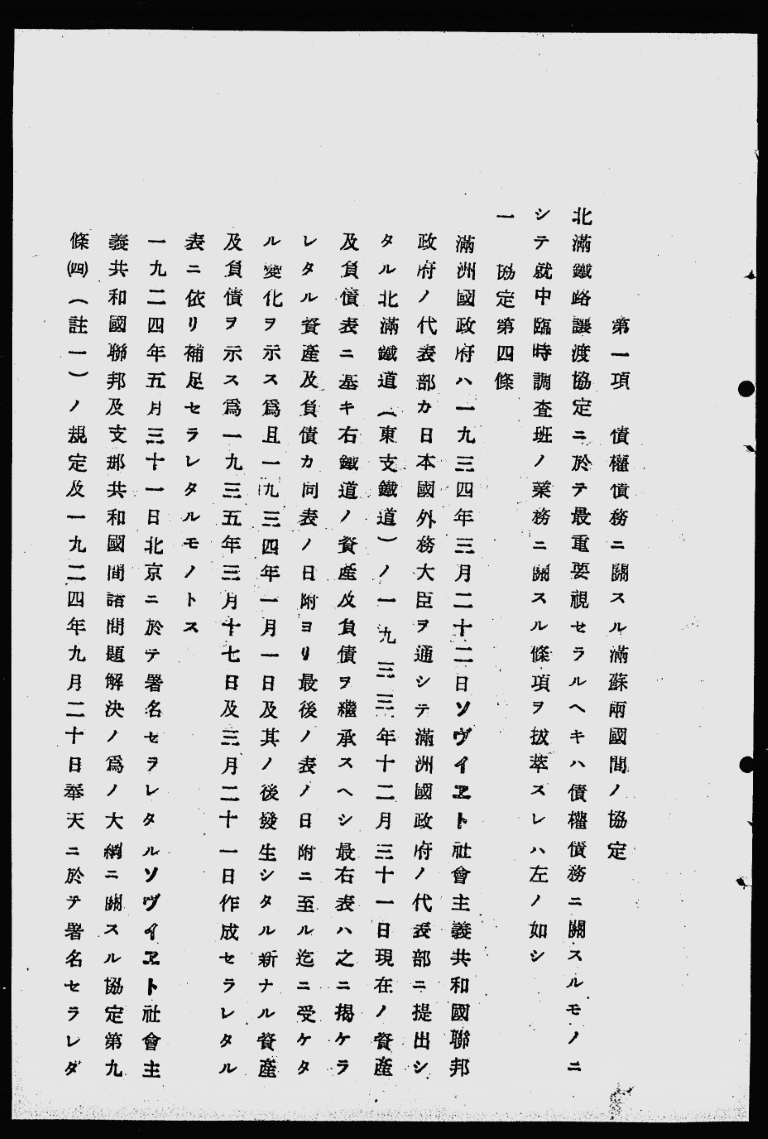 第一項　債權債務ニ關スル滿蘇兩國間ノ協定
北滿鐵路讓渡協定ニ於テ最重要視セラルヘキハ債權債務ニ關スルモノニ
シテ就中臨時調査班ノ業務ニ關スル條項ヲ拔萃スレハ左ノ如シ
一　協定第四條
滿洲國政府ハ一九三四年三月二十二日ソヴイヱト社會主義共和國聯邦
政府ノ代表部カ日本國外務大臣ヲ通シテ滿洲國政府ノ代表部ニ提出シ
タル北滿鐵道（東支鐵道）ノ一九三三年十二月三十一日現在ノ資產
及負債表ニ基キ右鐵道ノ資產及負債ヲ繼承スヘシ最右表ハ之ニ揭ケラ
レタル資產及負債カ同表ノ日附ヨリ最後ノ表ノ日附ニ至ル迄ニ受ケタ
ル變化ヲ示ス爲且一九三四年一月一日及其ノ後發生シタル新ナル資產
及負債ヲ示ス爲一九三五年三月十七日及三月二十一日作成セラレタル
表ニ依リ補足セラレタルモノトス
一九二四年五月三十一日北京ニ於テ署名セヲレタルソヴイヱト社會主
義共和國聯邦及支那共和國間諸問題解決ノ爲ノ大綱ニ關スル協定第九
條㈣（註一）ノ規定及一九二四年九月二十日奉天ニ於テ署名セラレダ